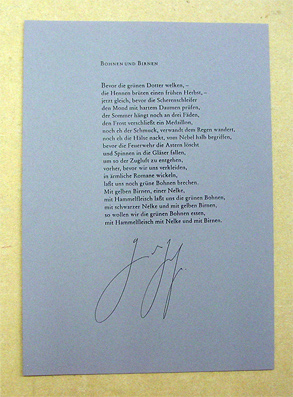 BOHNEN UND BIRNEN
Bevor die grünen Dotter welken, –
die Hennen brüten einen frühen Herbst, –
jetzt gleich, bevor die Scherenschleifer
den Mond mit hartem Daumen prüfen,
der Sommer hängt noch an drei Fäden,
den Frost verschließt ein Medaillon,
noch eh der Schmuck, verwandt dem Regen wandert,
noch eh die Hälse nackt, vom Nebel halb begriffen,
bevor die Feuerwehr die Astern löscht
und Spinnen in die Gläser fallen,
um so der Zugluft zu entgehen,
vorher, bevor wir uns verkleiden,
in ärmliche Romane wickeln,
laßt uns noch grüne Bohnen brechen.
Mit gelben Birnen, einer Nelke,
mit Hammelfleisch laßt uns die grünen Bohnen,
mit schwarzer Nelke und mit gelben Birnen,
so wollen wir die grünen Bohnen essen,
mit Hammelfleisch mit Nelke und mit Birnen.